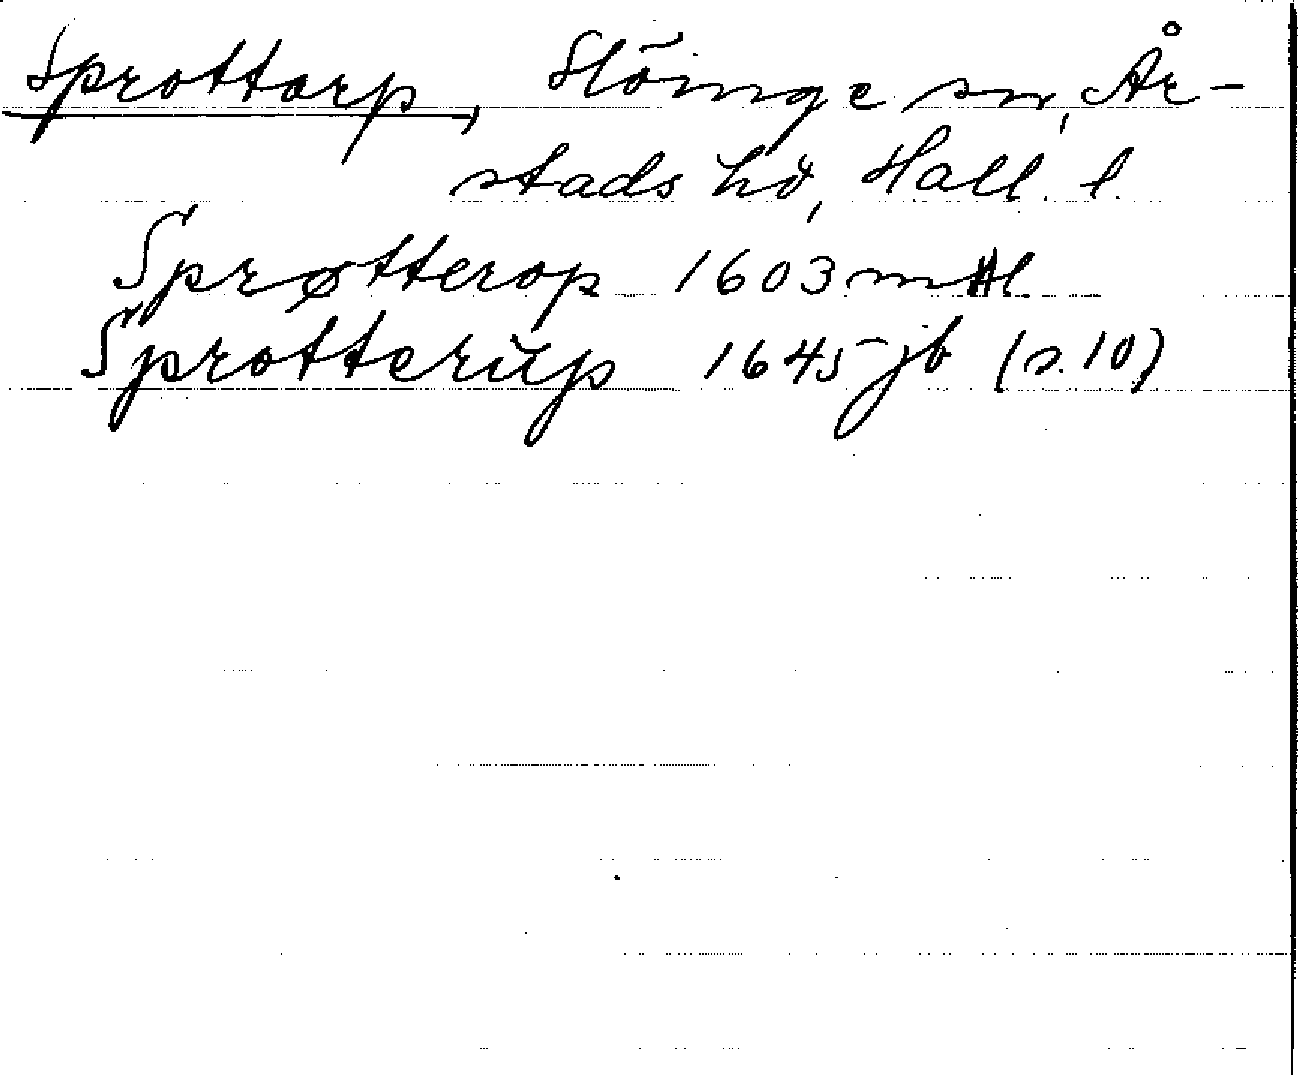 Sprottorp, Slöinge sn, År-
stads hd, Hall. l.
Sprøtterop 1603 mtl
Sprotterup 1645 jb (s. 10)